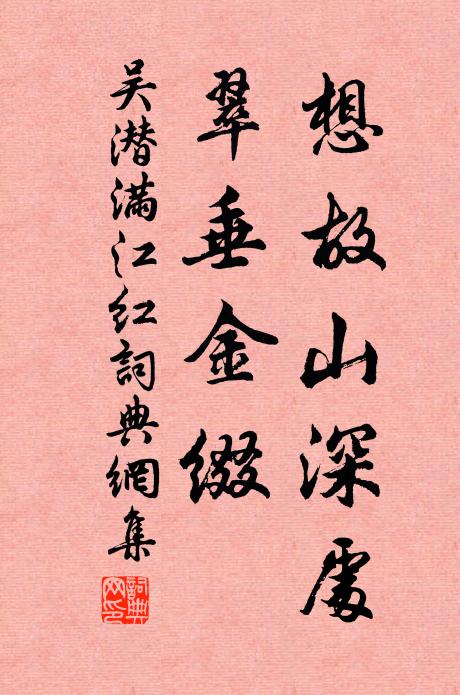 想故山深處
翠垂金綴
吴潜满江红詞典網集
詞典
网印